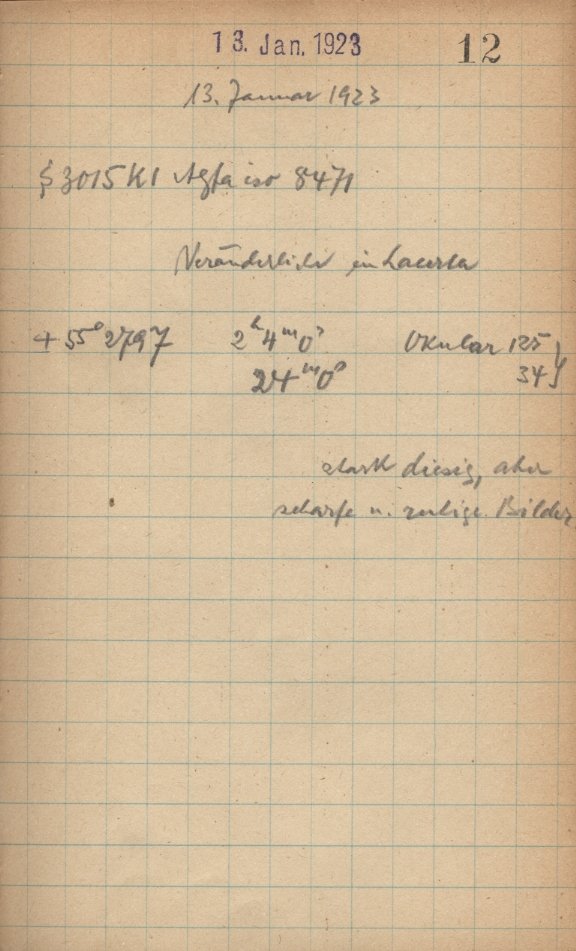 13. Jan. 1923 12
13. Januar 1923
§ 3015 K1 Agfa iso 8471
Veränderliche in Lacerta
+55° 2797 2ʰ4ᵐ0ˢ Okular 125 }
24ᵐ0ˢ 34 }
stark diesig, aber
scharfe u. ruhige Bilder